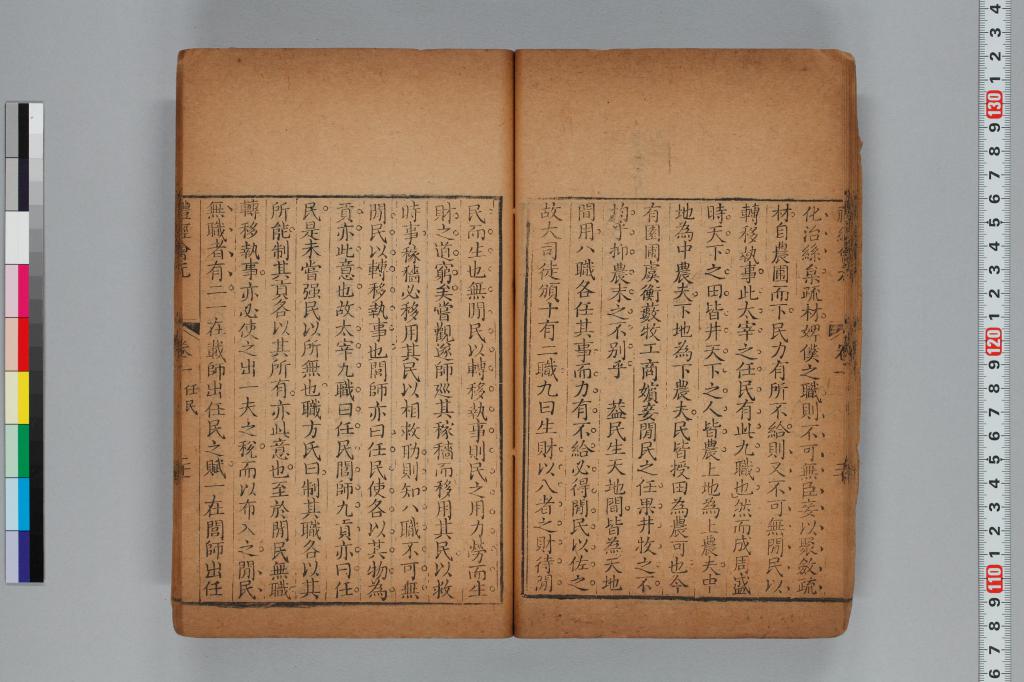 化治絲枲疏材婢僕之職則不可無臣妾以聚斂疏
材自農圃而下民力有所不給則又不可無閒民以
轉移執事此太宰之任民有此九職也然而成周盛
時天下之田皆井天下之人皆農上地為上農夫中
地為中農夫下地為下農夫民皆授田為農可也今
有園圃虞衡藪牧工商嬪妾閒民之任果井牧之不
均乎抑農末之不别乎 葢民生天地間皆為天地
間用八職各任其事而力有不給必得閒民以佐之
故大司徒頒十有二職九曰生財以八者之財待閒
民而生也無閒民以轉移執事則民之用力勞而生
財之道窮矣嘗觀遂師巡其稼穡而移用其民以救
時事稼穡必移用其民以相救助則知八職不可無
閒民以轉移執事也閭師亦曰任民使各以其物為
貢亦此意也故太宰九職曰任民閭師九貢亦曰任
民是未嘗强民以所無也職方氏曰制其職各以其
所能制其貢各以其所有亦此意也至於閒民無職
轉移執事亦必使之出一夫之稅而以布入之閒民
無職者有二一在載師出任民之賦一在閭師出任
禮經會元 卷一 任民